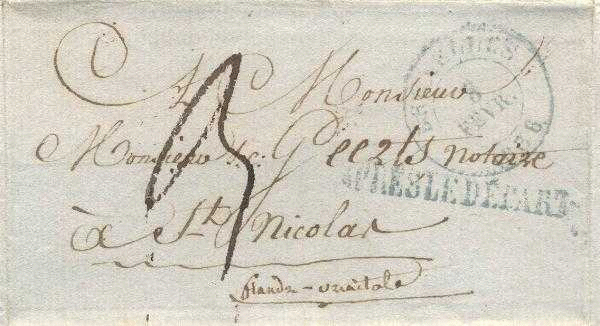 A Monsieur
Monsieur J. C. Geerts notaire
à St. Nicolas
flandre-orientale
3
8
FEVR.
1836
APRES LE DÉPART